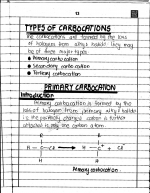 13
TYPES OF CARBOCATIONS
The carbocations are formed by the loss
of halogen from alkyl halide. They may
be of three major types
Primary carbocation
Secondary carbocation
Tertiary carbocation
PRIMARY CARBOCATION
Introduction
Primary carbocation is formed by the
loss of halogen from primary alkyl halide
is the positively charged carbon is further
attached is only one carbon atom
H H
R – C – Cl → R – C⁺ + Cl⁻
H H
Primary carbocation